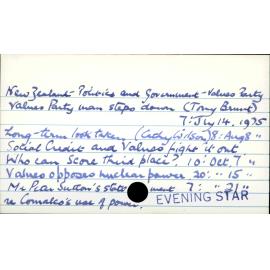 New Zealand - Politics and Government - Values Party
Values Party man steps down (Tony Brunt)
7: July 14, 1975
Long-term look taken (Cathy Wilson) 8: Aug 8 "
Social Credit and Values fight it out
Who can score third place? 10: Oct. 7 "
Values opposes nuclear power 20: " 15 "
Mr Sutton's statement 7: " 21 "
re Comalco's use of power.
EVENING STAR